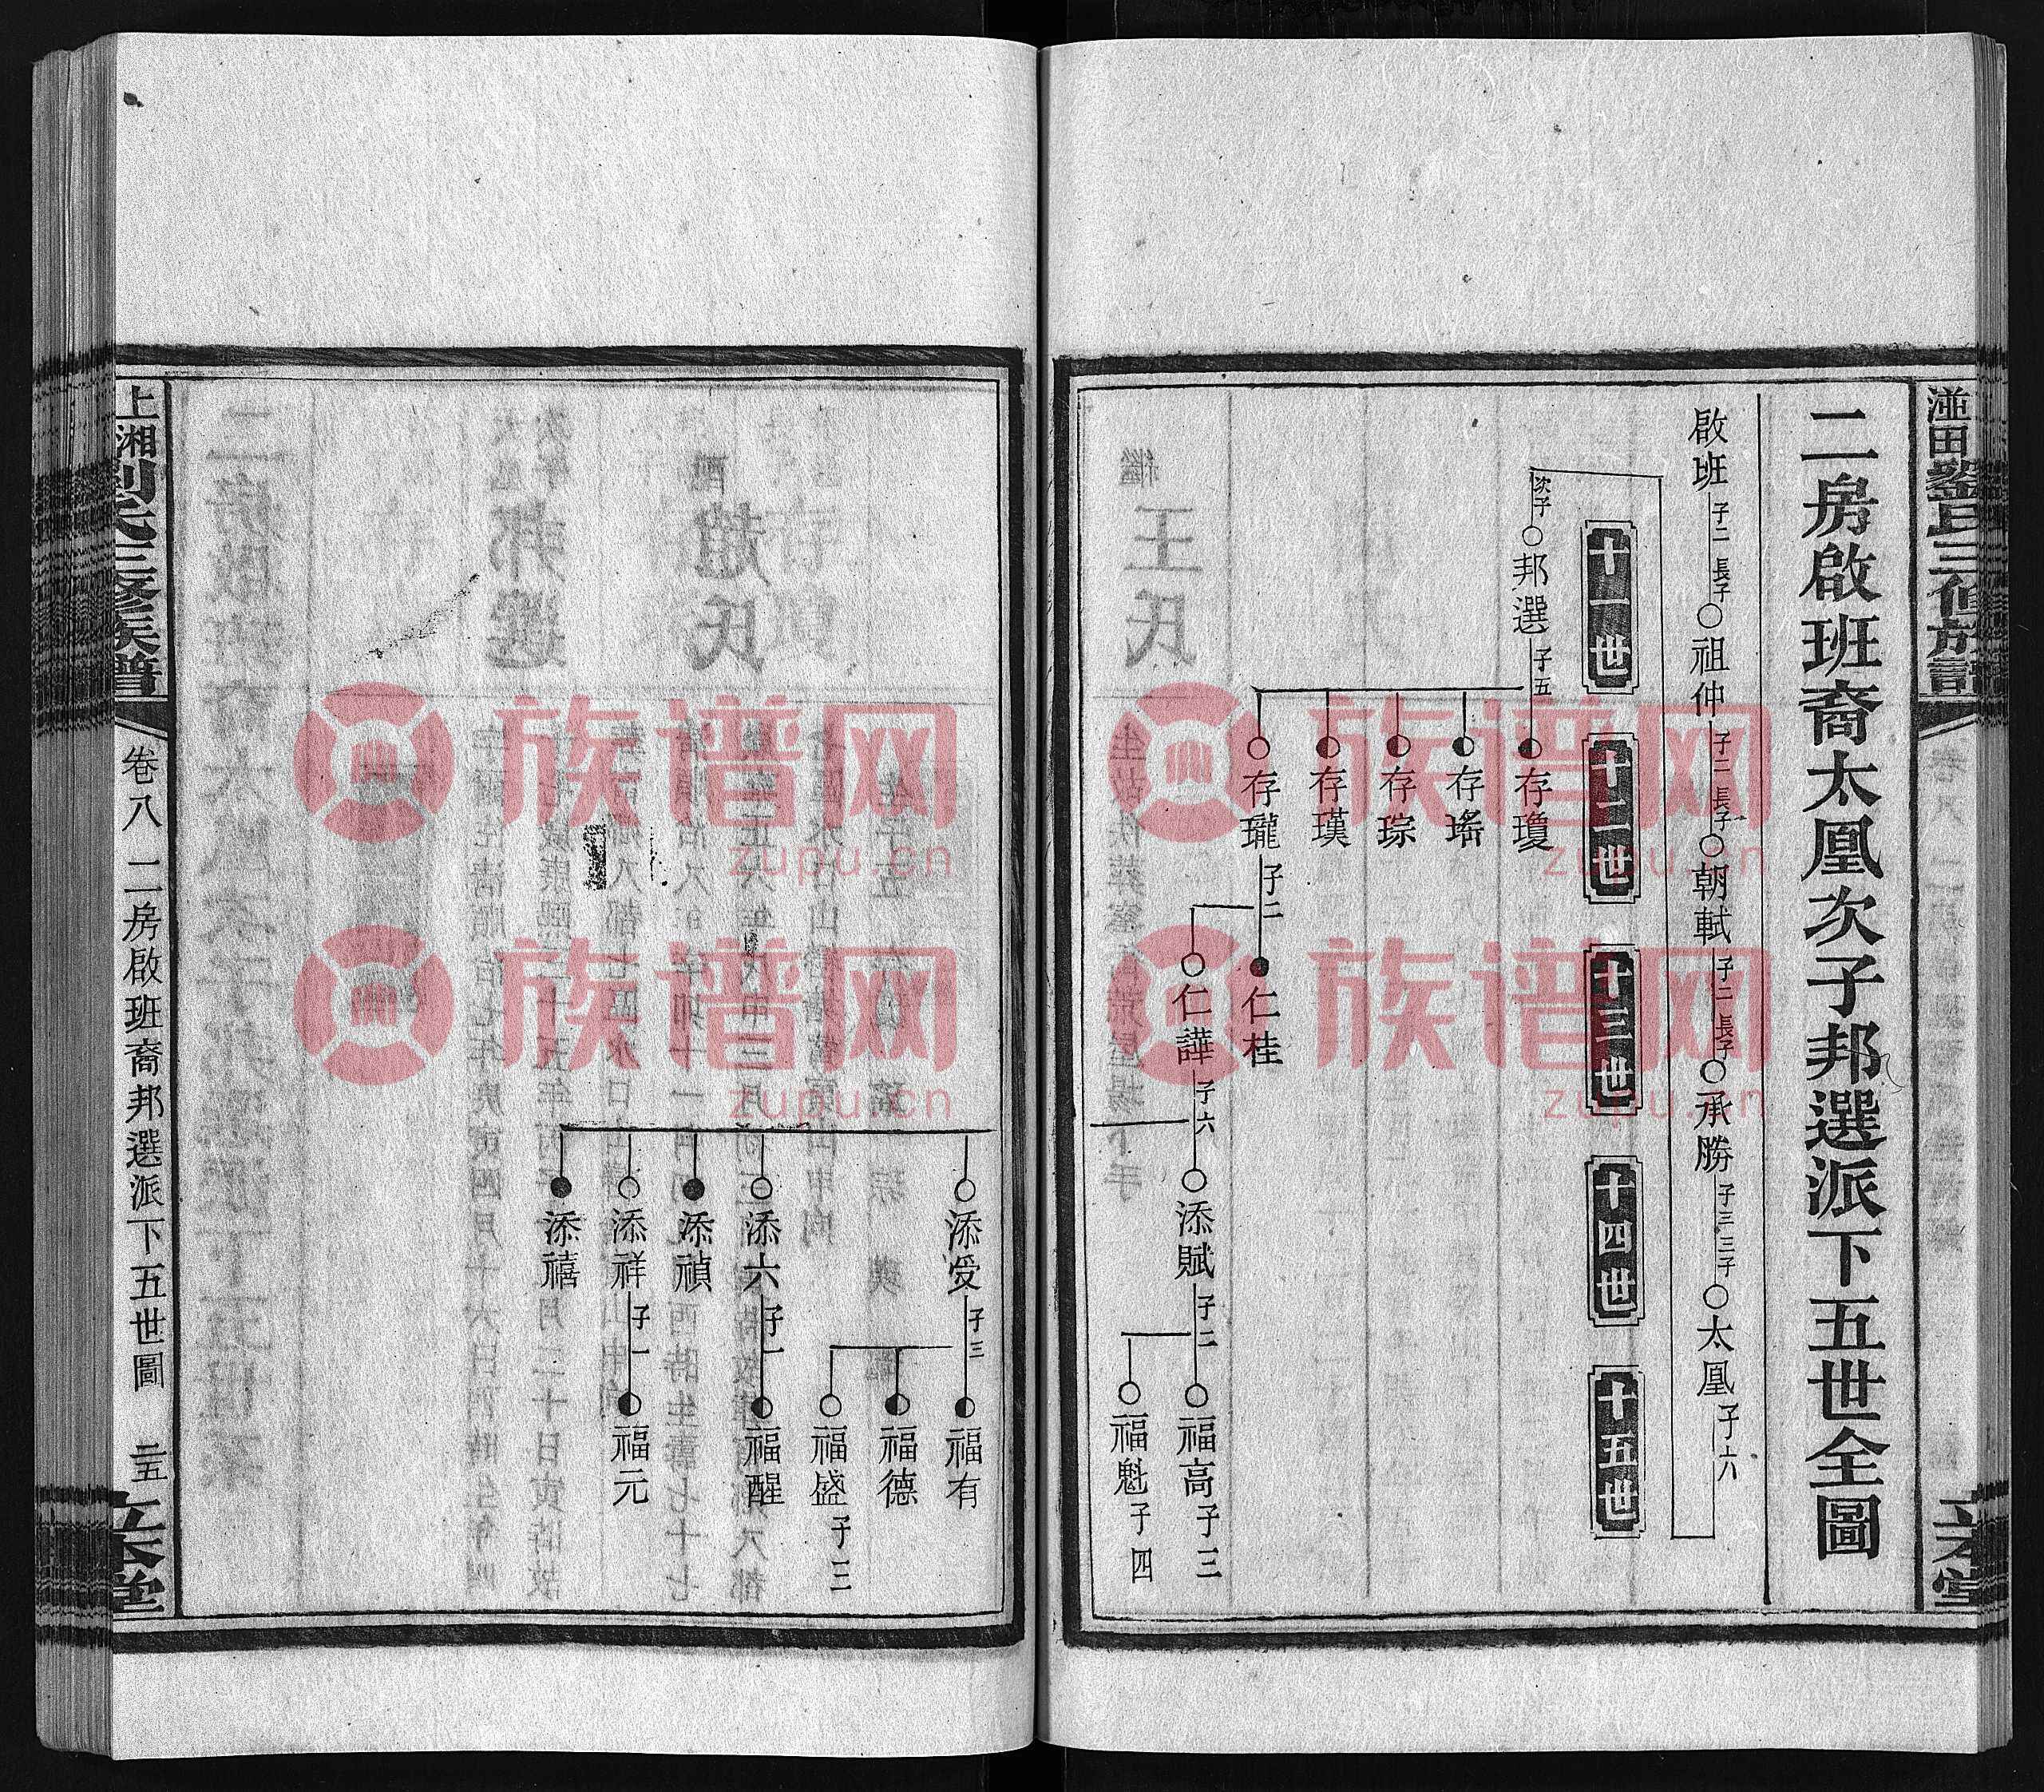 二房啟班裔太凰次子邦選派下五世全圖
啟班 子二 長子 ○祖仲 子二 長子 ○朝軾 子二 長子 ○承勝 子三 三子 ○太凰 子六
十一世
十二世
十三世
十四世
十五世
次子 ○邦選 子五
存瓊
存瑤
存琮
存璞
○存瓏 子二
●仁桂
○仁譁 子六
○添賦 子二
○福高 子三
○福魁 子四
○添受 子三
福有
福德
○福盛 子三
○添六 子一
福醒
●添禎
○添祥 子一
福元
●添禧
上湘劉氏三修族譜
卷八 二房啟班裔邦選派下五世圖 二五
族谱网
zupu.cn
族谱网
zupu.cn
族谱网
zupu.cn
族谱网
zupu.cn